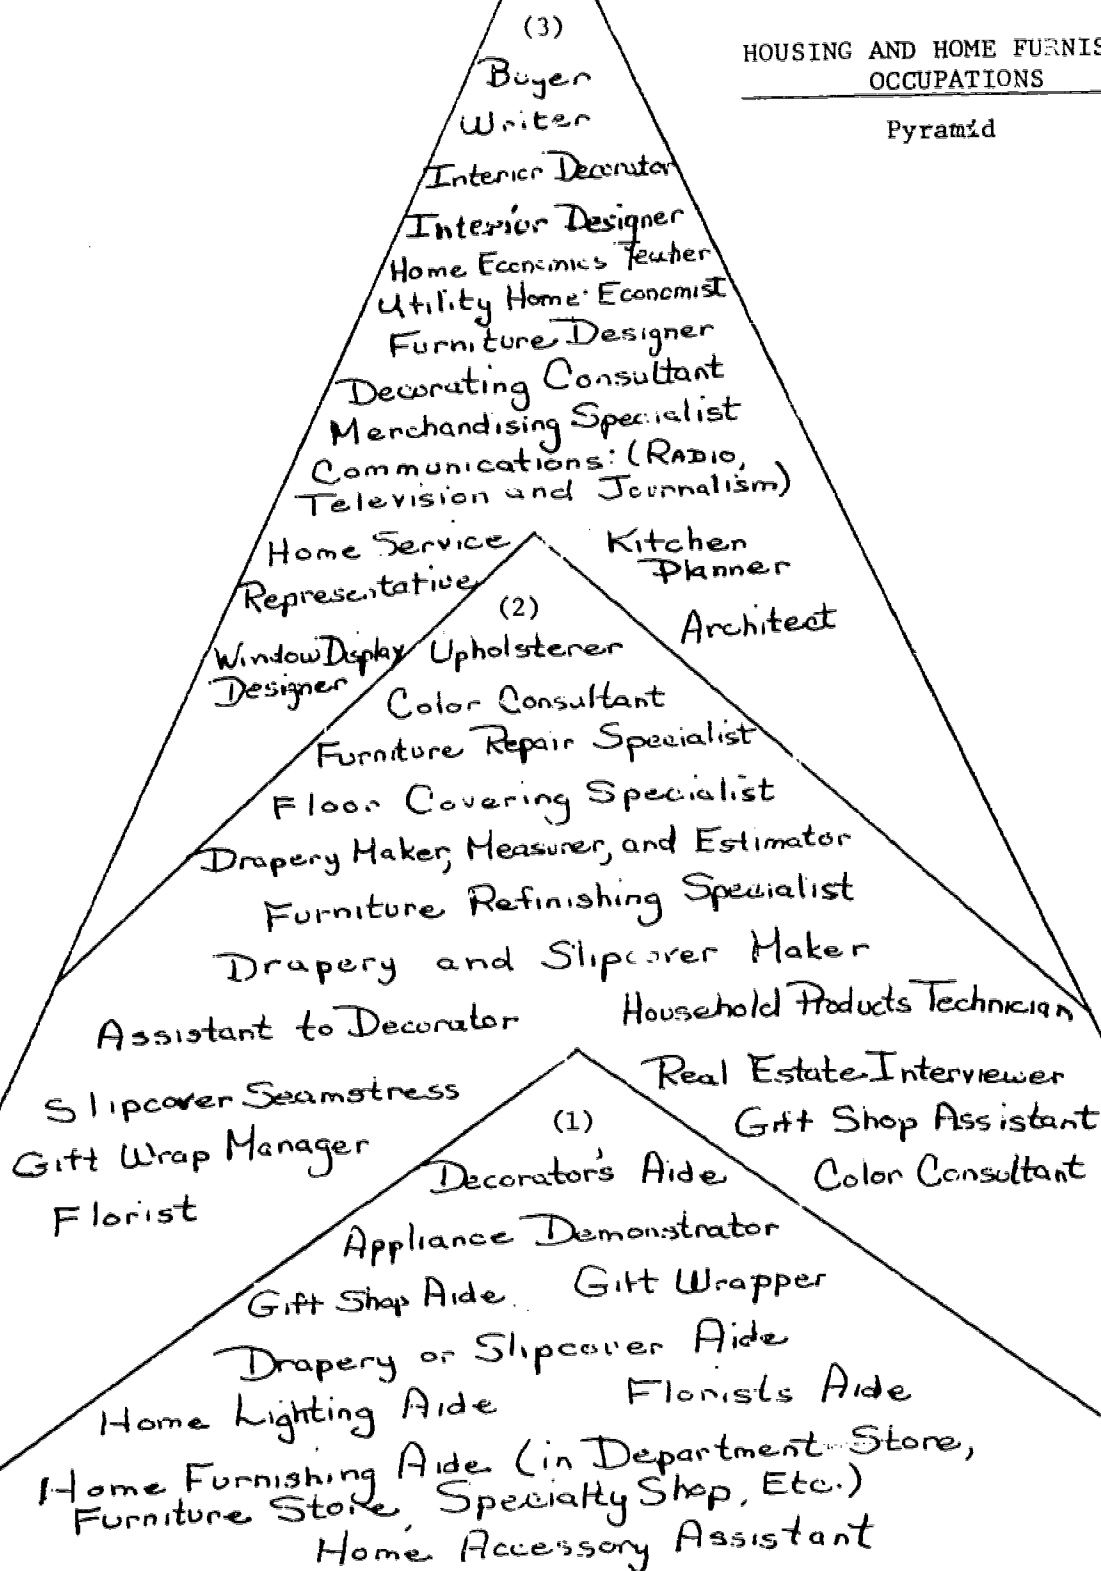 (3)
HOUSING AND HOME FURNIS
OCCUPATIONS
Pyramid
Buyer
Writer
Interior Decorator
Interior Designer
Home Economics Teacher
Utility Home Economist
Furniture Designer
Decorating Consultant
Merchandising Specialist
Communications: (Radio,
Television and Journalism)
Home Service
Representative
Kitchen
Planner
Architect
Window Display
Designer
(2)
Upholsterer
Color Consultant
Furniture Repair Specialist
Floor Covering Specialist
Drapery Maker, Measurer, and Estimator
Furniture Refinishing Specialist
Drapery and Slipcover Maker
Household Products Technician
Assistant to Decorator
Real Estate Interviewer
Slipcover Seamstress
Gift Shop Assistant
Gift Wrap Manager
Color Consultant
Florist
(1)
Decorator's Aide
Appliance Demonstrator
Gift Shop Aide Gift Wrapper
Drapery or Slipcover Aide
Home Lighting Aide Florists Aide
Home Furnishing Aide (in Department Store,
Furniture Store, Specialty Shop, Etc.)
Home Accessory Assistant